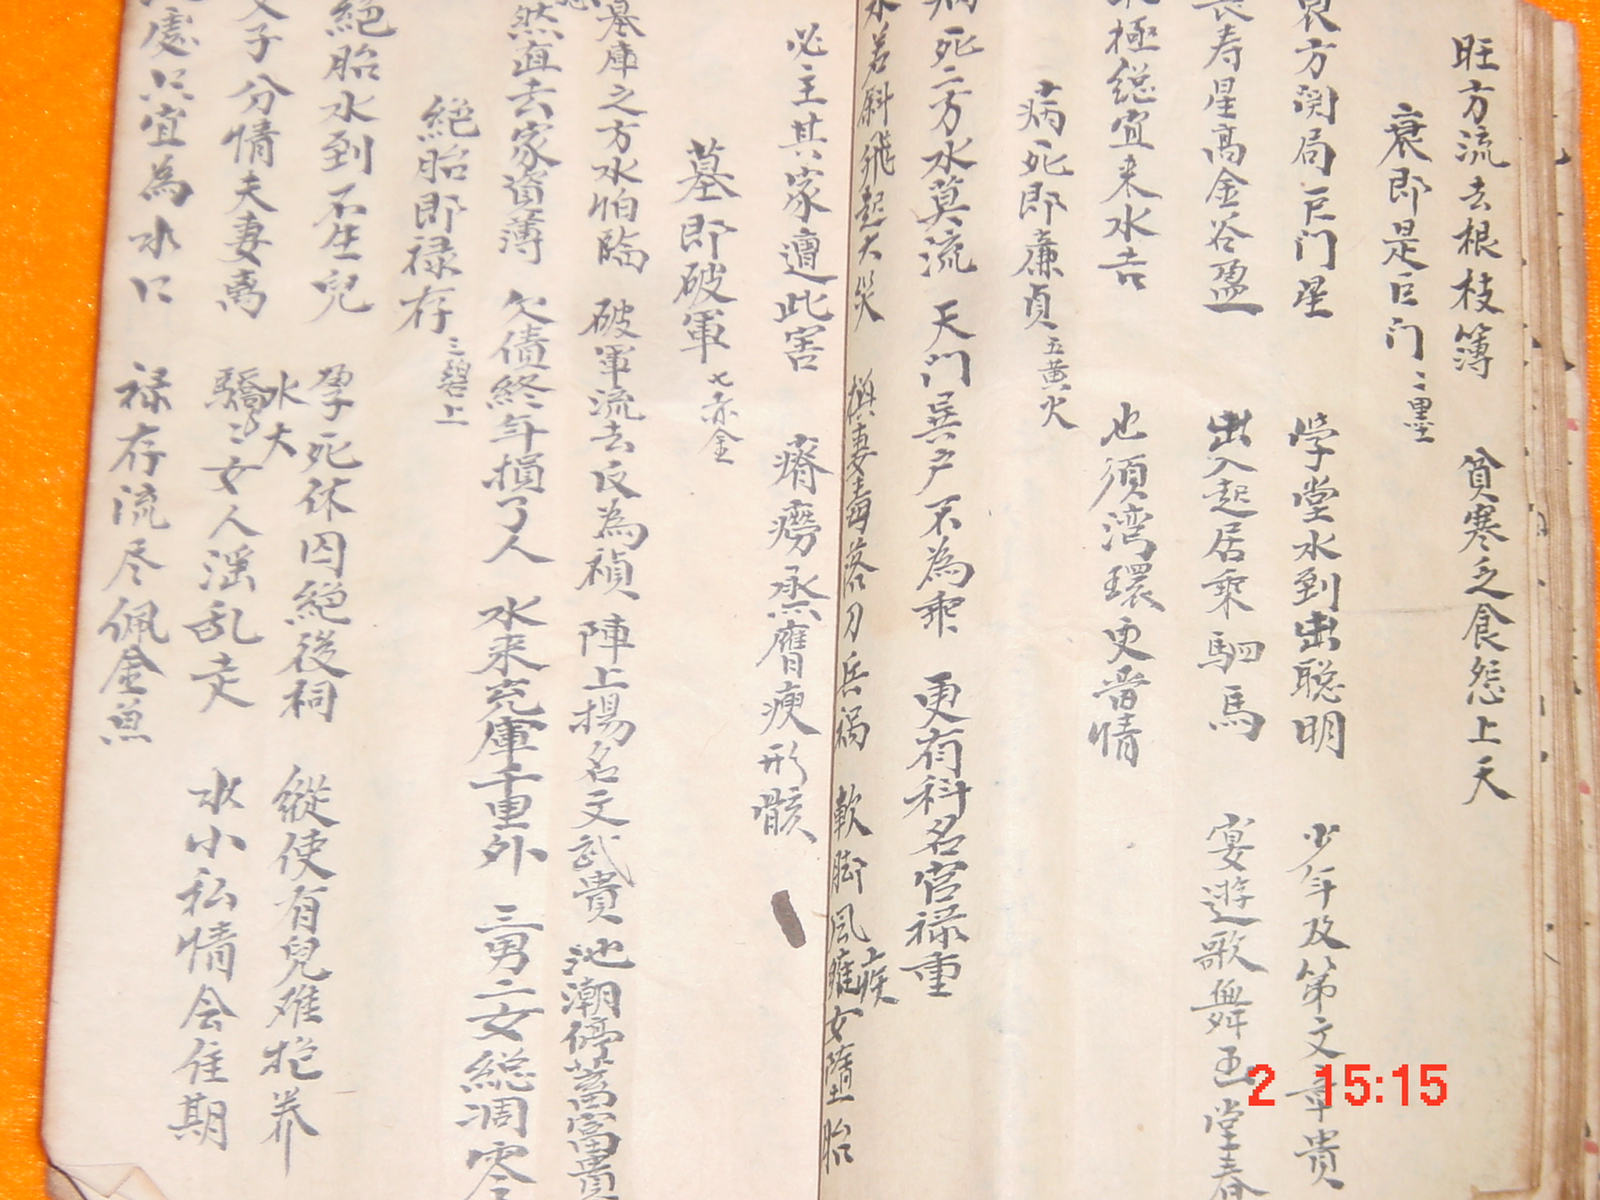 旺方流去根枝簿 貧寒乏食怨上天
衰即是巨门 二黑土
衰方関局巨门星 学堂水到出聪明 少年及第文章貴
長寿星高金谷盈 出入起居乘駟馬 宴遊歌舞玉堂春
極総宜来水吉 也須湾環更晋情
病死即廉貞 五黄火
病死二方水莫流 天门吴户不為乘 更有科名官禄重
水若斜飛起大災 損妻毒落刀兵祸 軟脚風瘫女墮胎
疾
必主其家遭此害 瘠癆烝膺瘐形骸
墓即破軍 七赤金
墓庫之方水怕臨 破軍流去反為禎 陣上揚名文武貴 池潮停蓄富貴
然直去家資薄 欠債終年損了人 水来充庫千里外 三男二女総凋零
絕胎即禄存 三碧上
絕胎水到不生兒 孕死休囚絕後祠 縱使有兒难抱养
水大
父子分情夫妻离 驕〻女人滛乱走 水小私情会佳期
處只宜為水口 禄存流尽佩金魚
2 15:15